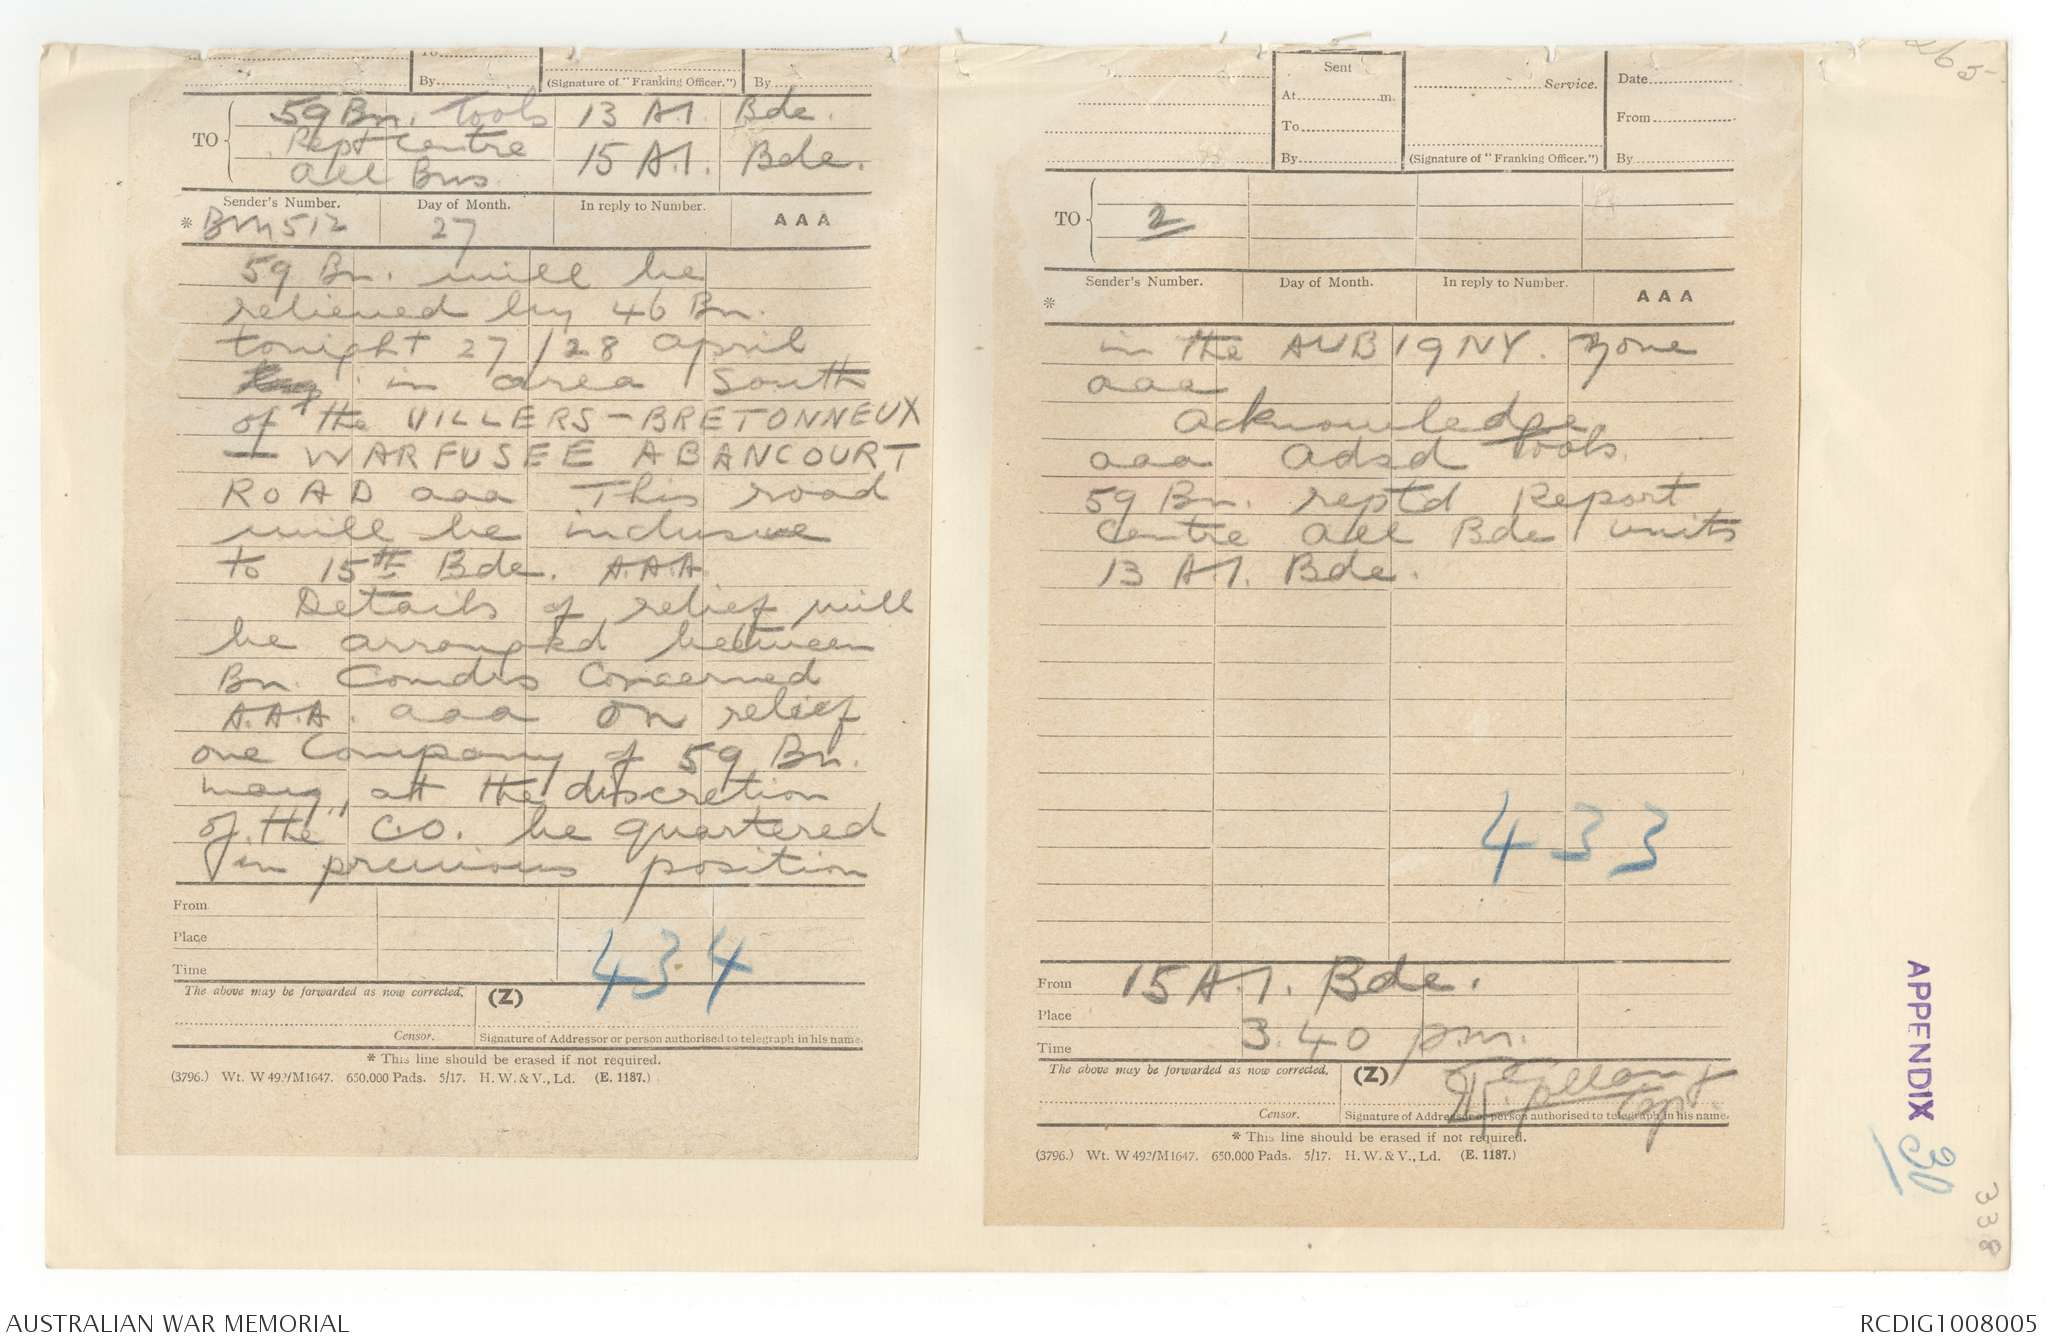 265
To
By
(Signature of "Franking Officer.")
By
TO
59 Bn. Tools 13 A.I. Bde.
Rept Centre
All Bns. 15 A.I. Bde.
Sender's Number. Day of Month. In reply to Number. AAA
* BM 512 27
59 Bn. will be
relieved by 46 Bn.
tonight 27/28 April
in area South
of the VILLERS-BRETONNEUX
- WARFUSEE ABANCOURT
ROAD aaa This road
will be inclusive
to 15th Bde. A.A.A.
Details of relief will
be arranged between
Bn. Comdrs Concerned
A.A.A. aaa On relief
one Company of 59 Bn.
may, at the discretion
of the C.O. be quartered
in previous position
From
Place
Time
434
The above may be forwarded as now corrected. (Z)
Censor. Signature of Addressor or person authorised to telegraph in his name.
* This line should be erased if not required.
(3796.) Wt. W 492/M1647. 650,000 Pads. 5/17. H. W. & V., Ld. (E. 1187.)
Sent
At m.
To
By
Service.
(Signature of "Franking Officer.")
Date
From
By
TO
2
Sender's Number. Day of Month. In reply to Number. AAA
*
in the AUBIGNY. Zone
aaa
Acknowledge
aaa Adsd Tools
59 Bn. reptd Report
Centre all Bde units
13 A.I. Bde.
433
From 15 A.I. Bde.
Place
Time 3.40 pm.
The above may be forwarded as now corrected. (Z)
Cap
Censor. Signature of Addressor or person authorised to telegraph in his name.
* This line should be erased if not required.
(3796.) Wt. W 492/M1647. 650,000 Pads. 5/17. H. W. & V., Ld. (E. 1187.)
APPENDIX 30
338
AUSTRALIAN WAR MEMORIAL
RCDIG1008005